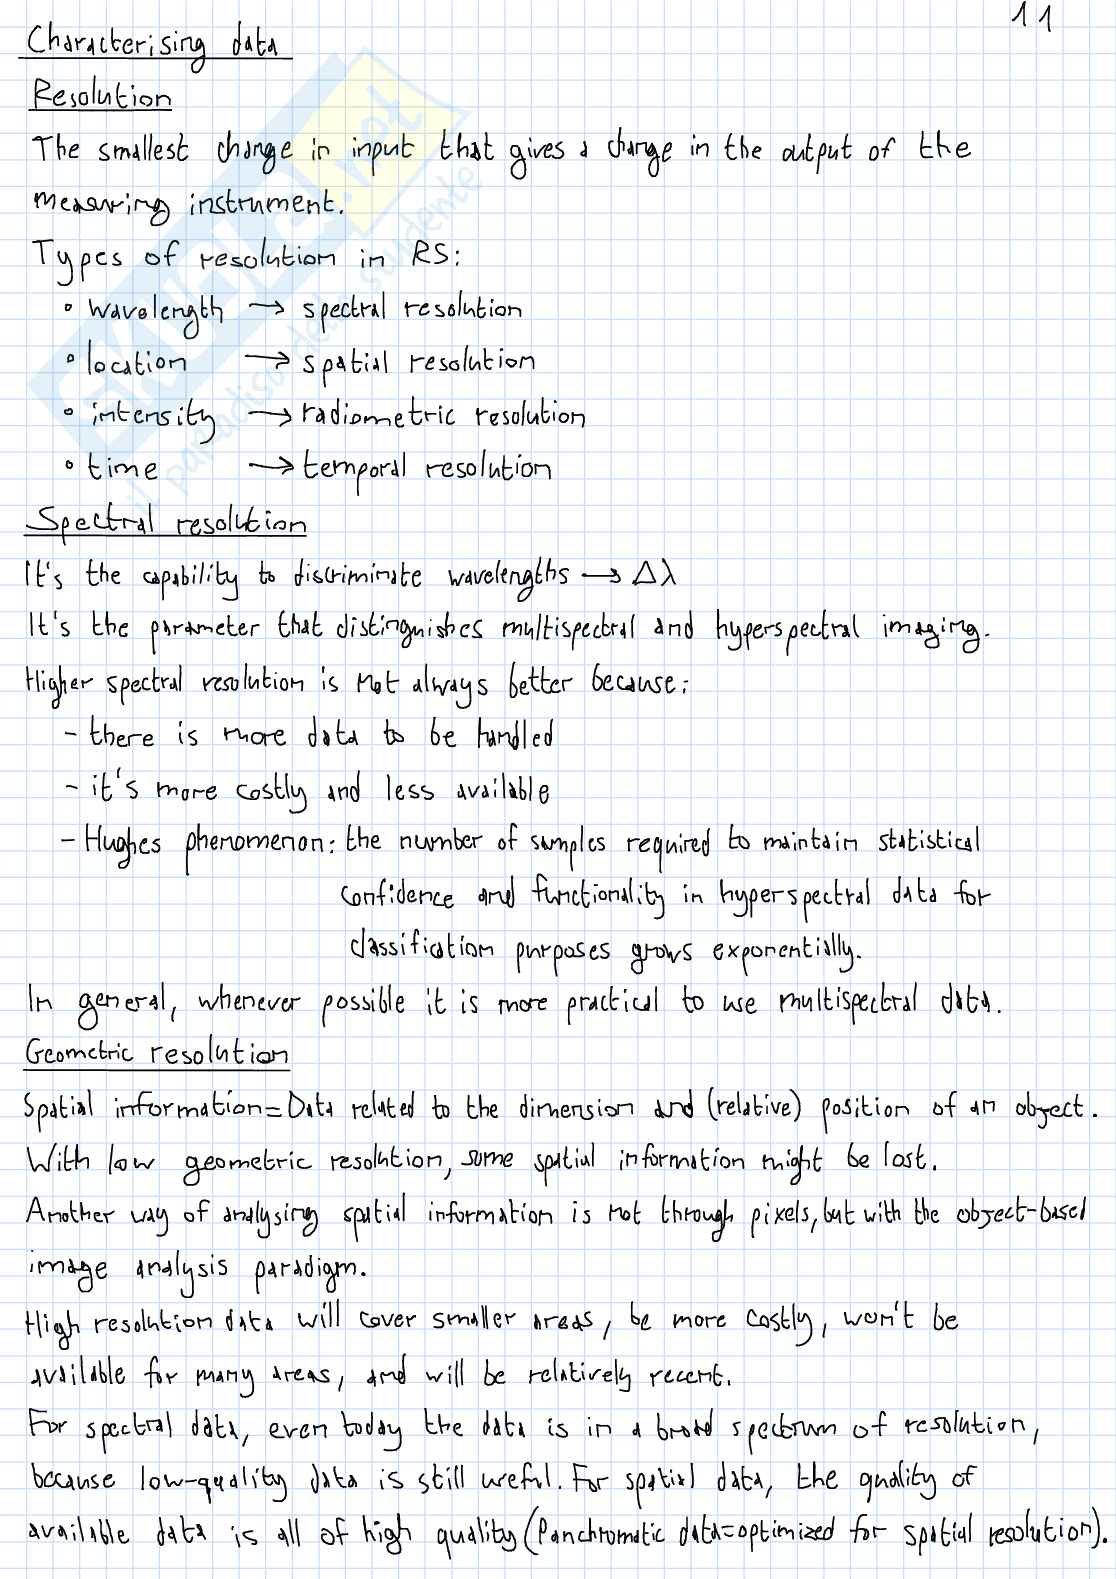 11
Characterising data
Resolution
The smallest change in input that gives a change in the output of the
measuring instrument.
Types of resolution in RS:
• wavelength → spectral resolution
• location → spatial resolution
• intensity → radiometric resolution
• time → temporal resolution
Spectral resolution
It's the capability to discriminate wavelengths → Δλ
It's the parameter that distinguishes multispectral and hyperspectral imaging.
Higher spectral resolution is not always better because:
- there is more data to be handled
- it's more costly and less available
- Hughes phenomenon: the number of samples required to maintain statistical
confidence and functionality in hyperspectral data for
classification purposes grows exponentially.
In general, whenever possible it is more practical to use multispectral data.
Geometric resolution
Spatial information = Data related to the dimension and (relative) position of an object.
With low geometric resolution, some spatial information might be lost.
Another way of analysing spatial information is not through pixels, but with the object-based
image analysis paradigm.
High resolution data will cover smaller areas, be more costly, won't be
available for many areas, and will be relatively recent.
For spectral data, even today the data is in a broad spectrum of resolution,
because low-quality data is still useful. For spatial data, the quality of
available data is all of high quality (Panchromatic data = optimized for spatial resolution).
SKUOLA.net
il paradiso dello studente